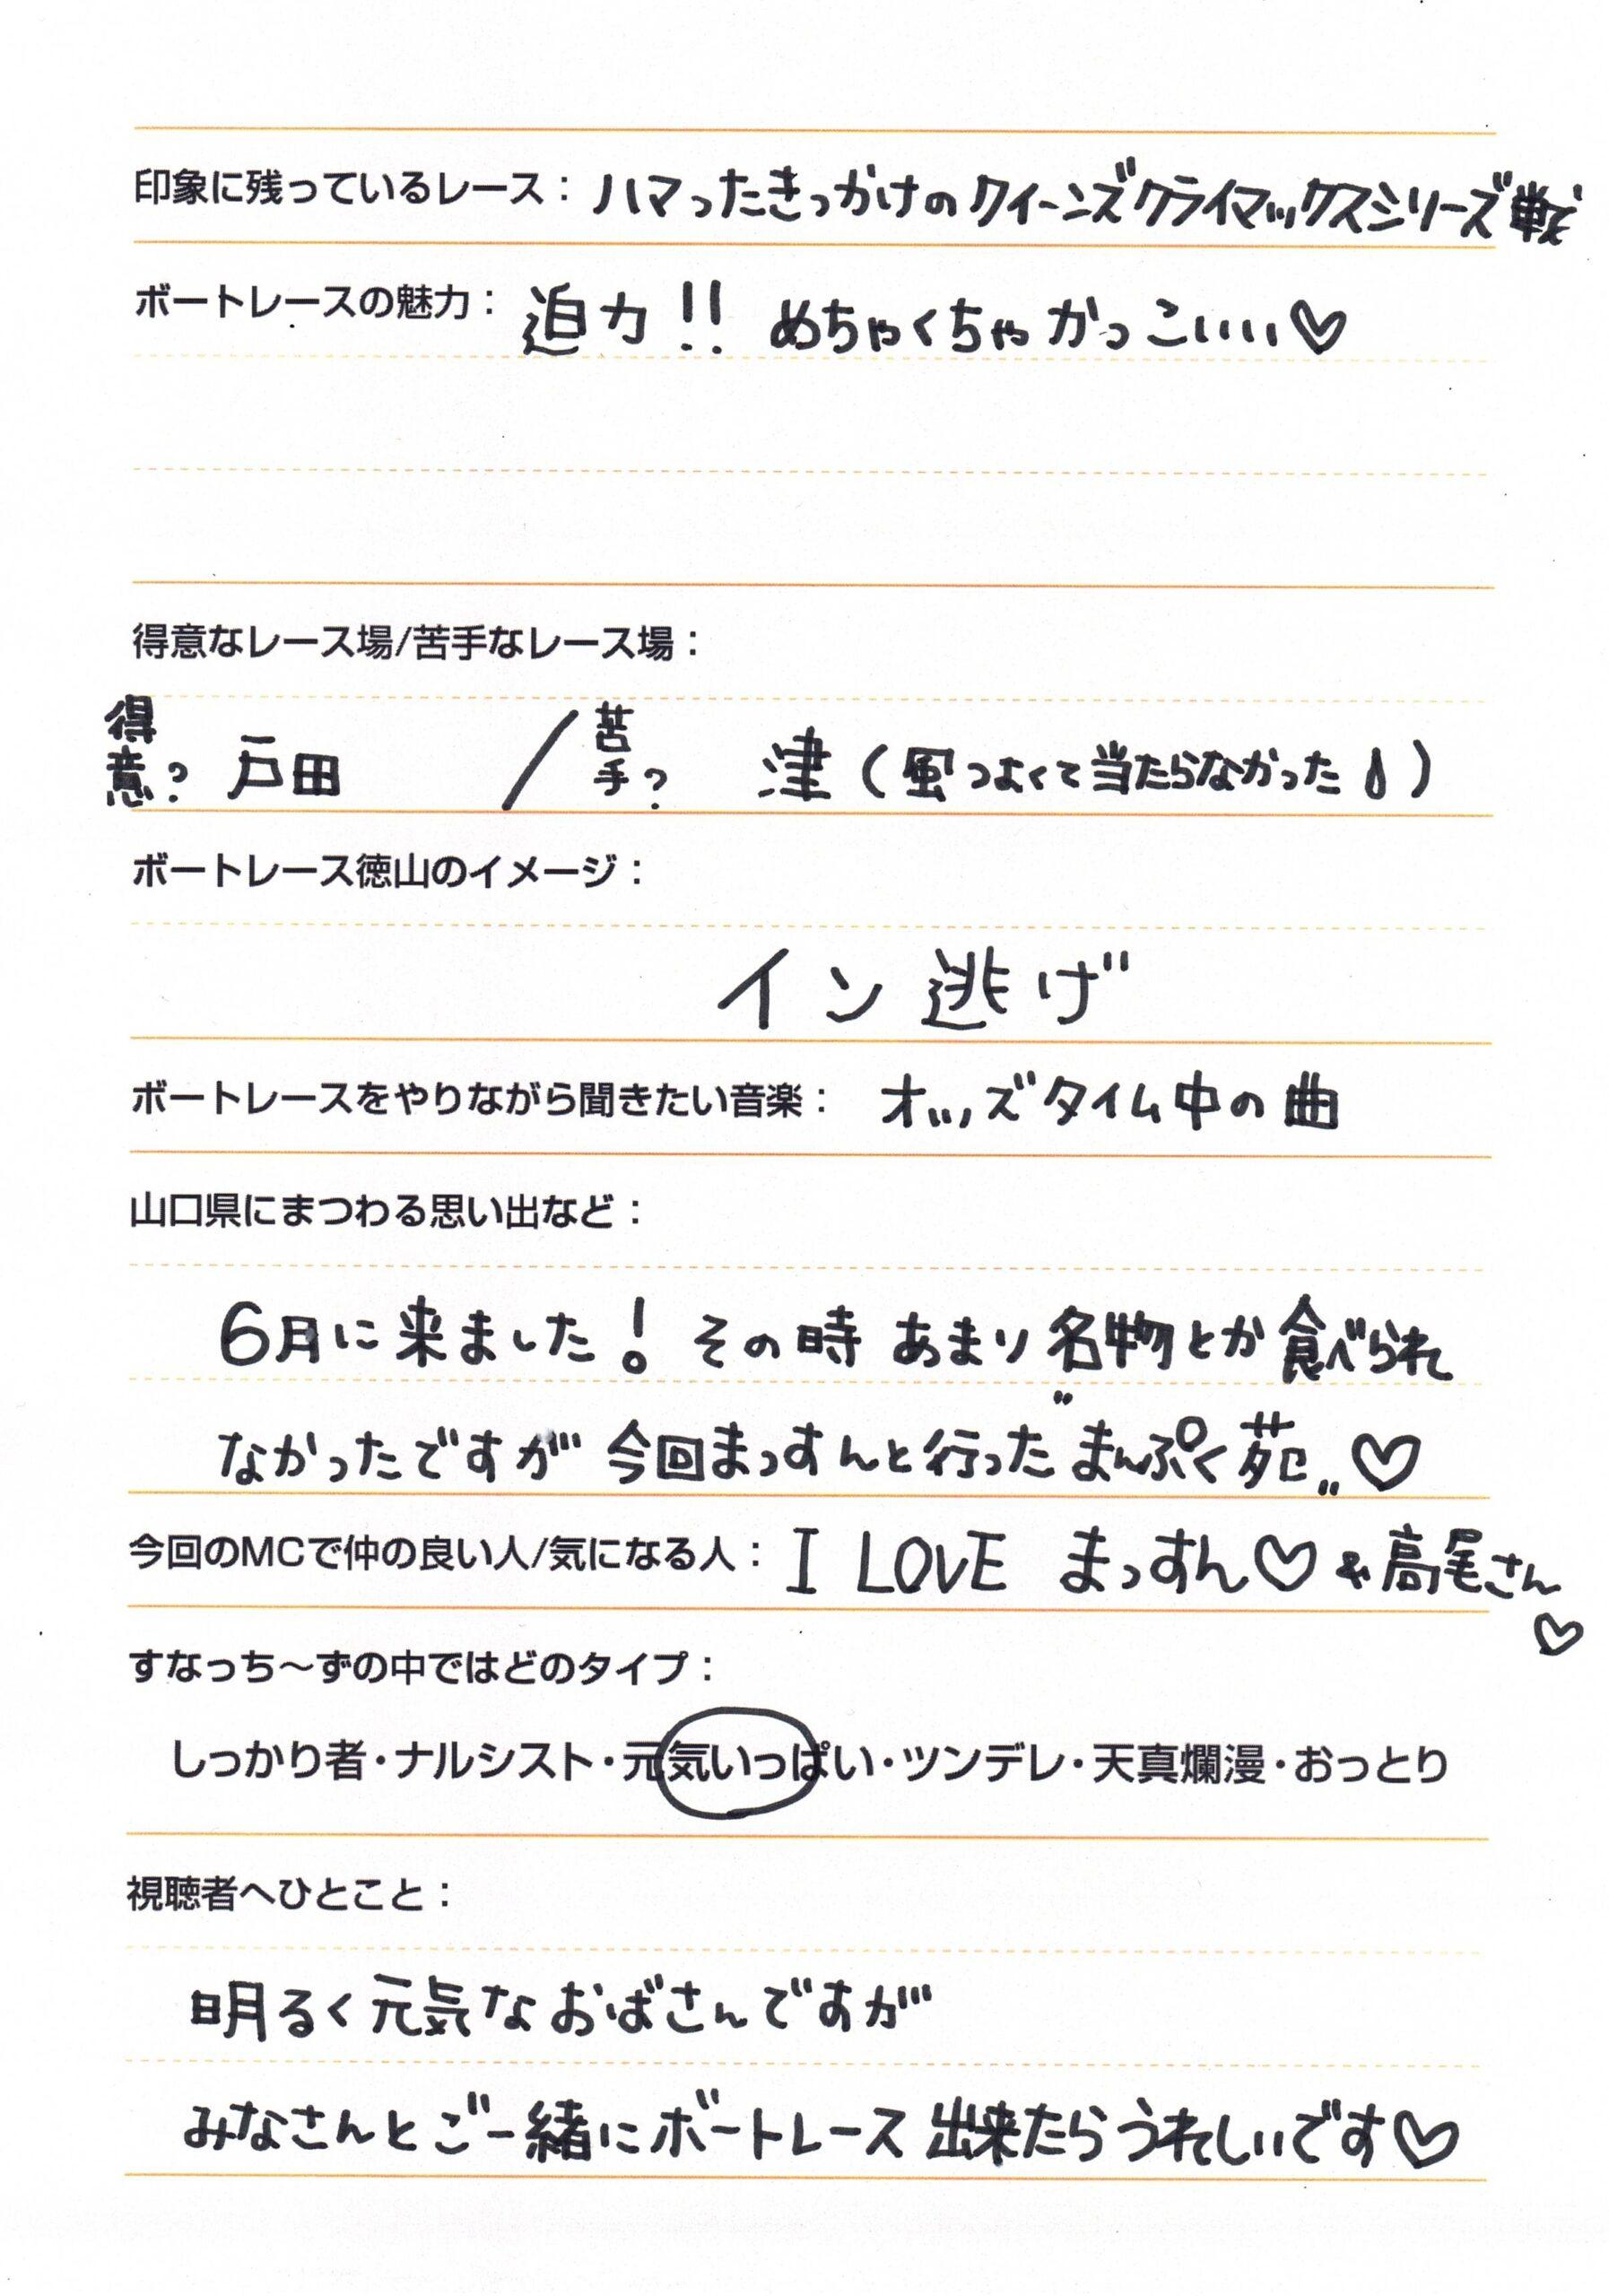 印象に残っているレース：ハマったきっかけのクイーンズクライマックスシリーズ戦
ボートレースの魅力：迫力!! めちゃくちゃかっこいいい♡
得意なレース場/苦手なレース場：
得意? 戸田 / 苦手? 津（風つよくて当たらなかった）
ボートレース徳山のイメージ：
イン逃げ
ボートレースをやりながら聞きたい音楽：オッズタイム中の曲
山口県にまつわる思い出など：
6月に来ました! その時 あまり名物とか食べられ
なかったですが 今回まっすんと行った"まんぷく苑"♡
今回のMCで仲の良い人/気になる人：I LOVE まっすん♡ & 高尾さん♡
すなっち〜ずの中ではどのタイプ：
しっかり者・ナルシスト・元気いっぱい・ツンデレ・天真爛漫・おっとり
視聴者へひとこと：
明るく元気なおばさんですが
みなさんとご一緒にボートレース出来たらうれしいです♡